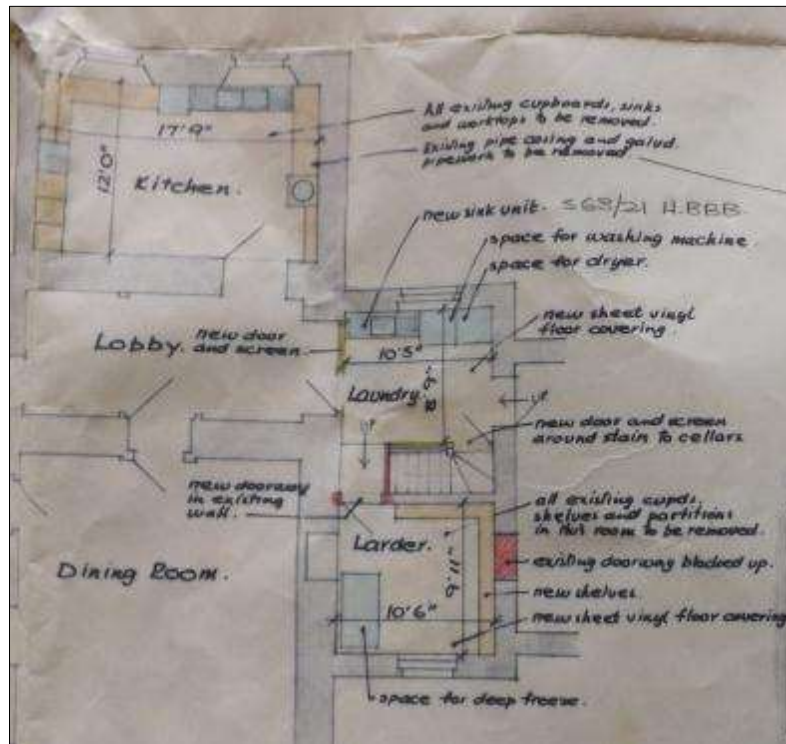 All existing cupboards, sinks
and worktops to be removed.
17'9"
Existing pipe casing and galvd.
pipework to be removed
12'0"
Kitchen.
new sink unit. S63/21 H.BBB.
space for washing machine
space for dryer.
new sheet vinyl
floor covering.
Lobby.
new door
and screen.
10'5"
Laundry.
up
up
new door and screen
around stain to cellars
new doorway
in existing
wall.
all existing cupds,
shelves and partitions
in this room to be removed.
Larder.
existing doorway blocked up.
Dining Room.
new shelves
10'6"
new sheet vinyl floor covering
space for deep freeze.